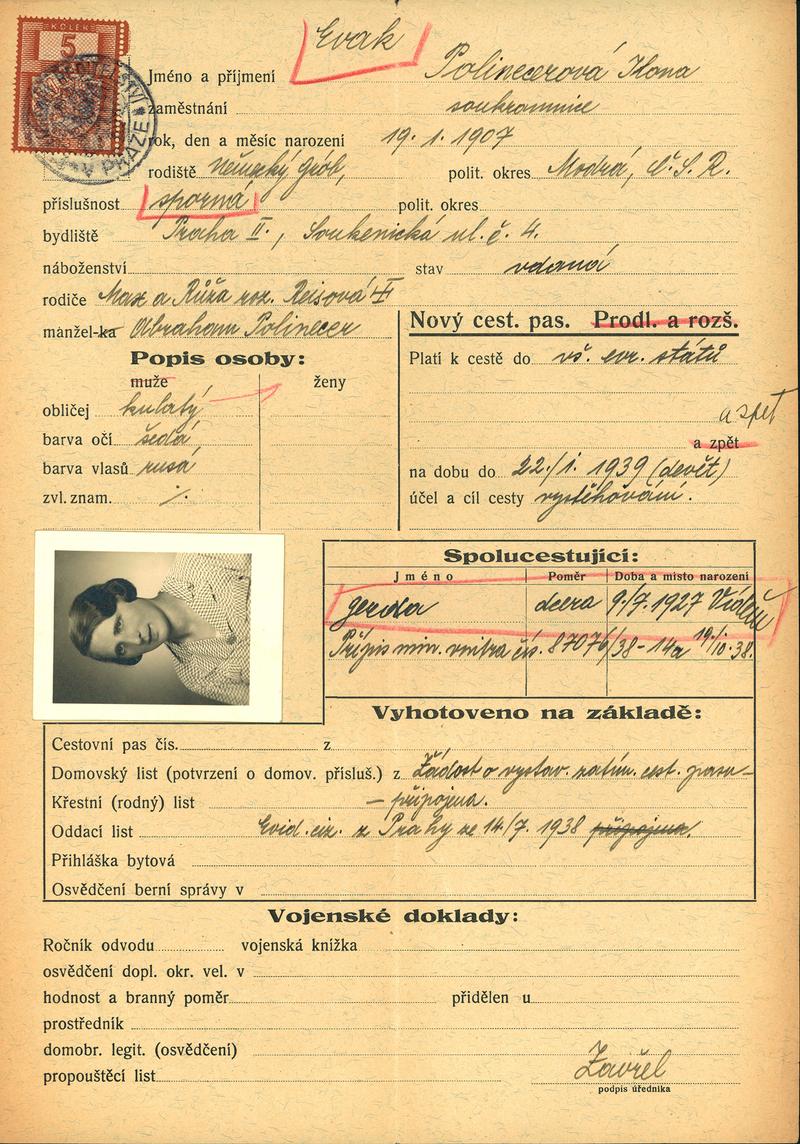 KOLEK
5
PRAZE
Evak
Jméno a příjmení Polinecerová Ilona
zaměstnání soukromnice
rok, den a měsíc narození 19. 1. 1907
rodiště Německý Grób, polit. okres Modrá, Č. S. R.
příslušnost sporná polit. okres
bydliště Praha II., Soukenická ul. č. 4.
náboženství stav vdaná
rodiče Max a Růža roz. Reisová
manžel-ka Abraham Polinecer
Nový cest. pas. Prodl. a rozš.
Popis osoby:
Platí k cestě do vš. evr. států
muže ženy
obličej kulatý
a zpět
barva očí šedá
a zpět
barva vlasů rusá
na dobu do 22./1. 1939 (devět)
zvl. znam. ·/.
účel a cíl cesty vystěhování.
Spolucestující:
Jméno Poměr Doba a místo narození
Gerda dcera 9./7. 1927 Vídeň
Přípis min. vnitra čís. 87076/38-14a 19./10. 38.
Vyhotoveno na základě:
Cestovní pas čís. z
Domovský list (potvrzení o domov. přísluš.) z Žádost o vystav. zatím. cest. pasu –
Křestní (rodný) list – připojena.
Oddací list Evid. ciz. z Prahy ze 14./7. 1938 připojena.
Přihláška bytová
Osvědčení berní správy v
Vojenské doklady:
Ročník odvodu vojenská knížka
osvědčení dopl. okr. vel. v
hodnost a branný poměr přidělen u
prostředník
domobr. legit. (osvědčení)
propouštěcí list Zavřel
podpis úředníka